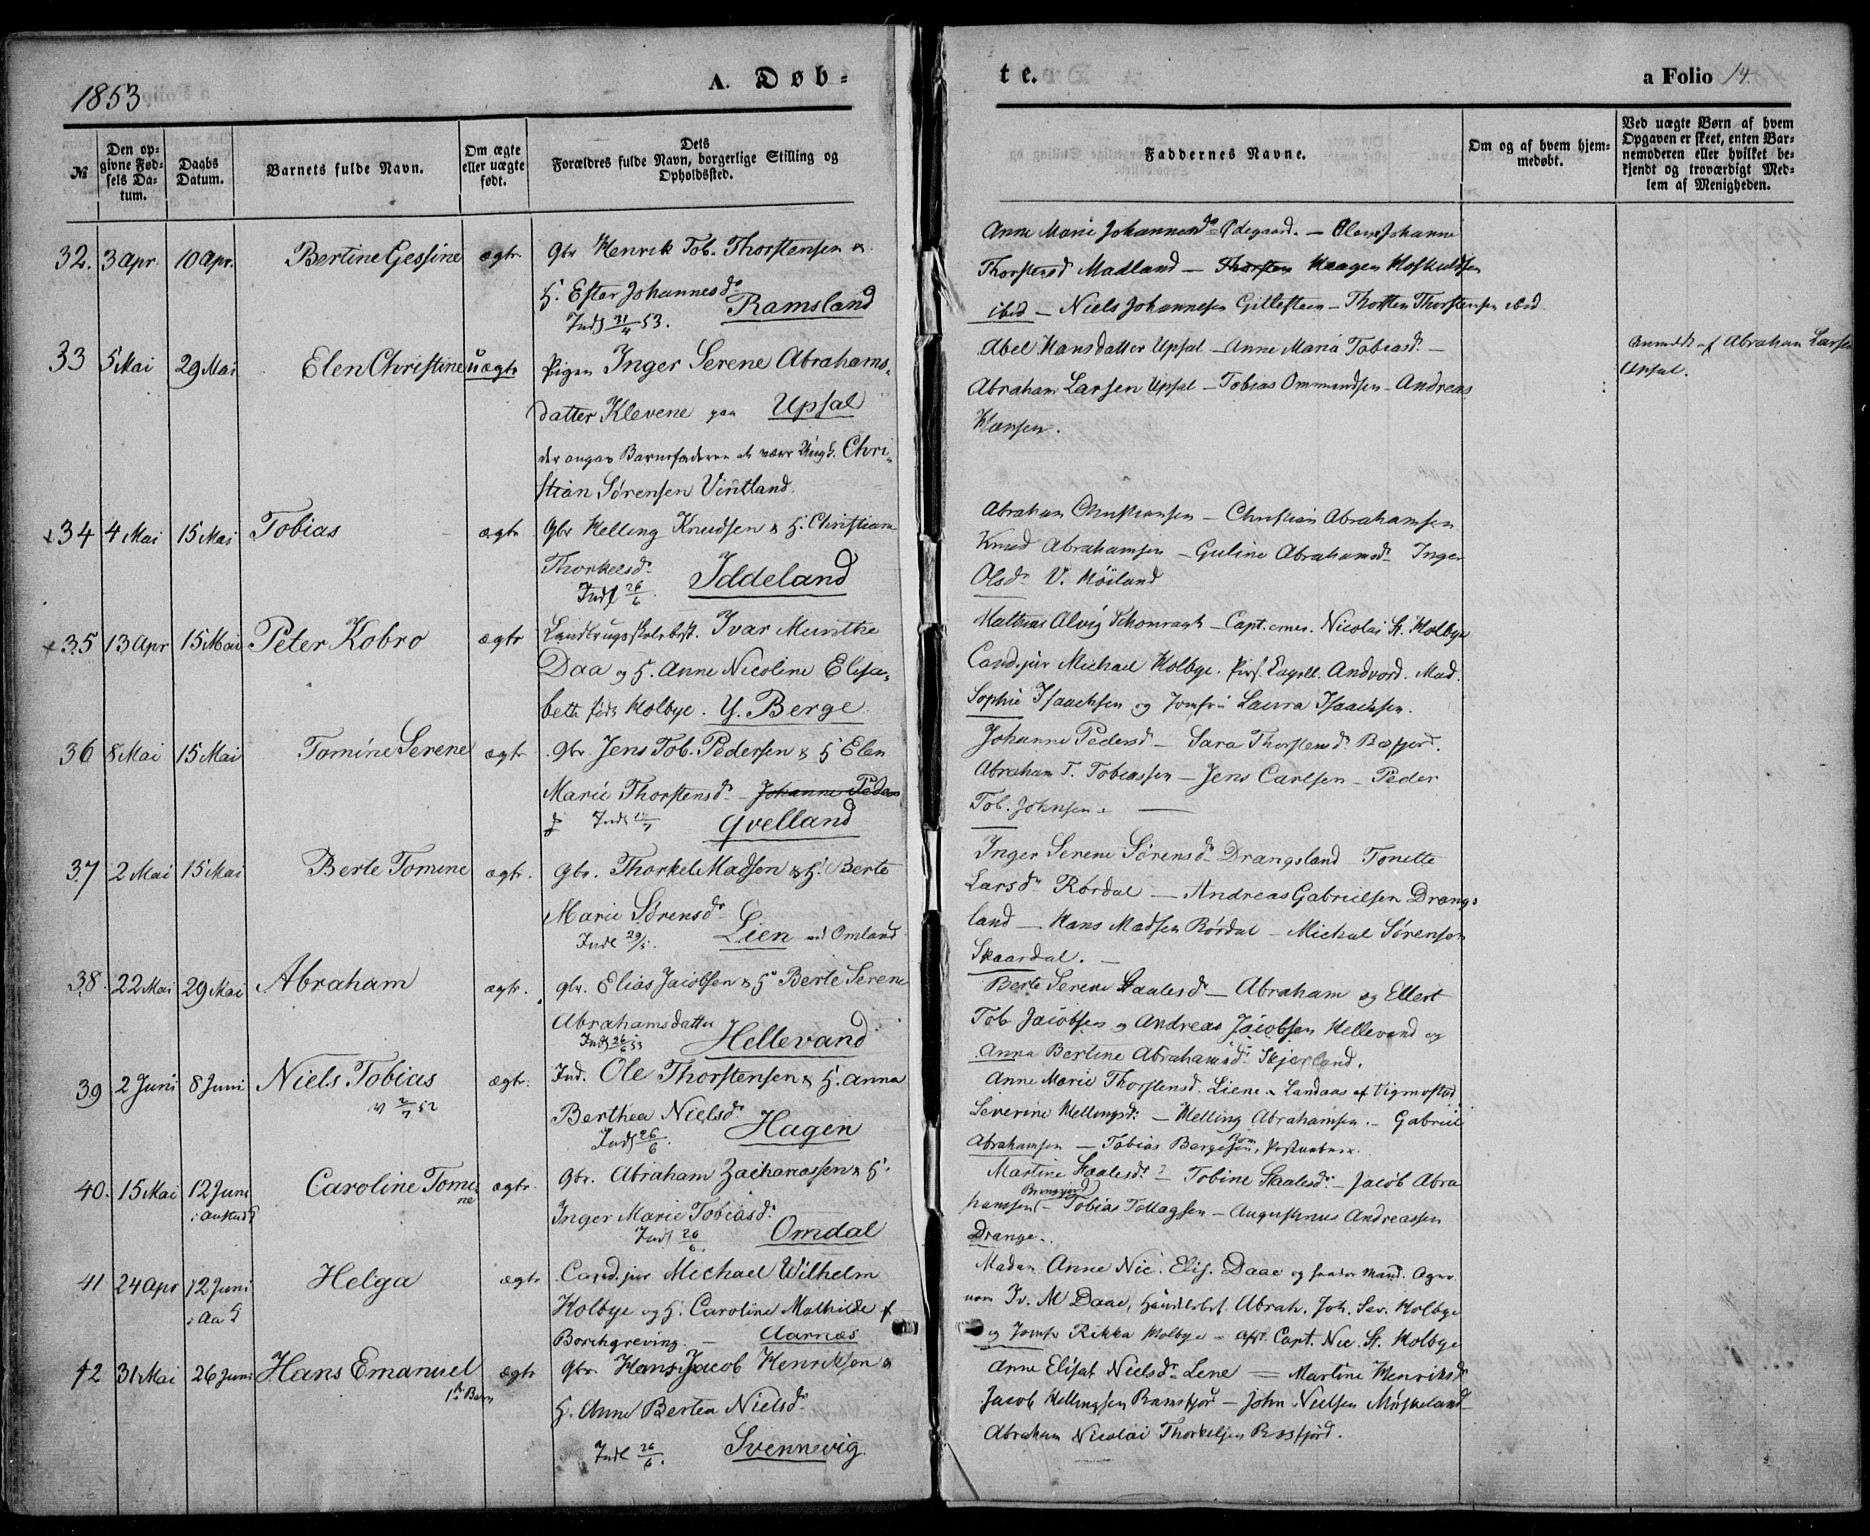 1853
A. Døb-
№
Den op-
givne Fød-
sels Da-
tum.
Daabs
Datum.
Barnets fulde Navn.
Om ægte
eller uægte
født.
Dets
Forældres fulde Navn, borgerlige Stilling og
Opholdssted.
32. 3 Apr. 10 Apr. Bertine Gessine ægte Gbr Henrik Tob. Thorstensen &
H. Ester Johannesd.
Ramsland
33 5 Mai 29 Mai Elen Christine uægte Pigen Inger Serene Abrahams-
datter Klevene paa Upsal
der angav Barnefaderen at være Ungk. Chri-
stian Sørensen Vintland.
34 4 Mai 15 Mai Tobias ægte Gbr Helling Knudsen & H. Christiane
Thorkelsd.
Indf 26/6. Iddeland
35 13 Apr 15 Mai Peter Kobro ægte Landbrugsskolebest. Ivar Munthe
Daa og H. Anne Nicoline Elisa-
beth føds Holbye. Y. Berge
36 8 Mai 15 Mai Tomine Serene ægte Gbr. Jens Tob. Pedersen & H Elen
Marie Thorstensd. Johanne Peders
Qvelland
37 2 Mai 15 Mai Berte Tomine ægte. Gbr. Thorkel Madsen & H. Berte
Marie Sørensd.
Lien ved Omland
38. 22 Mai 29 Mai Abraham ægte. gbr. Elias Jacobsen & H Berte Serene
Abrahamsdatter
Indf 26/6 53 Hellevand
39 2 Juni 8 Juni Niels Tobias ægte. Ind. Ole Thorstensen & H. Anna
Berthea Nielsd.
Indf 26/6. Hagen
40. 15 Mai 12 Juni Caroline Tomi-
ne ægte. Gbr. Abraham Zachariassen & H.
Inger Marie Tobiasd.
Indf 26/6. Omdal
41 24 Apr 12 Juni Helga ægte Cand. jur Michael Wilhelm
Holbye og H. Caroline Mathilde f
Borchgreving. — Aarnæs
42 31 Mai 26 Juni Hans Emanuel ægte Gbr. Hans Jacob Henriksen &
1ste Barn
H. Anne Berten Nielsd.
Indf 26/6. Svennevig
te.
a Folio 14.
Faddernes Navne.
Om og af hvem hjem-
medøbt.
Ved uægte Børn af hvem
Opgaven er skeet, enten Bar-
nemoderen eller hvilket be-
kjendt og troværdigt Med-
lem af Menigheden.
Anne Marie Johannesd. Ødegaard. — Johanne
Thorstensd Madland — Thorsten Haagen Hoskuldsen
ibid — Niels Johannesen Gitlesteen — Thorsten Thorstensen ibid
Abel Hansdatter Upsal — Anne Maria Tobiasd. —
Abraham Larsen Upsal — Tobias Ommundsen — Andreas
Hansen.
Anmeldt af Abraham Larsen
Upsal.
Abraham Christiansen — Christian Abrahamsen
Knud Abrahamsen — Guline Abrahamsd. Inger
Olsd. V. Høiland
Mathias Alvig — Capt. Nicolai St. Holbye
Cand. jur Michael Holbye. Andvord. Mad.
Sophie Isaachsen og Jomfru Laura Isaachsen.
Johanne Pedersd — Sara Thorstensd.
Abraham T. Tobiassen — Jens Carlsen — Peder
Tob. Johnsen.
Inger Serene Sørensd. Drangsland Tonette
Larsd. Rørdal — Andreas Gabrielsen Drangs-
land — Hans Madsen Rørdal — Michal Sørensen
Skaardal. —
Berte Serene Staalesd — Abraham og Ellert
Tob. Jacobsen og Andreas Jacobsen Hellevand og
Anna Bertine Abrahamsd. Skjerland.
Anne Marie Thorstensd. Liene af Vigmostad
Severine Hellingsd. — Helling Abrahamsen. — Gabriel
Abrahamsen — Tobias
Martine Staalesd. — Tobine Staalesd. — Jacob Abra
hamsen — Tobias Tollagsen — Augustinus Andreassen
Drange.
Madam Anne Nic. Elis. Daae og hendes Mand. Agro-
nom Iv. M Daae, Abrah. Joh. Sev. Holbye
og Jomfr Rikka Holbye — Capt. Nic. St. Holbye
Anne Elisat Nielsd. Lene — Martine Henriksd.
Jacob Hellingsen Ramsfjord — John Nielsen
Abraham Nicolai Thorkelsen Rosfjord.